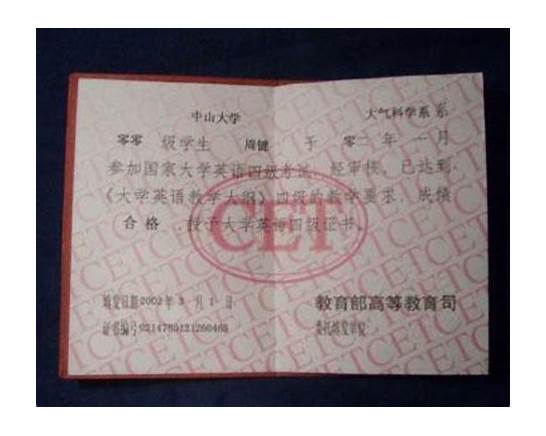 中山大学 大气科学系系
零零 级学生 周键 于 零二 年 一 月
参加国家大学英语四级考试,经审核,已达到
《大学英语教学大纲》四级的教学要求,成绩
合格 ,授予大学英语四级证书。
CET
填发日期2002年 3 月 1 日 教育部高等教育司
证书编号 委托填发学校: